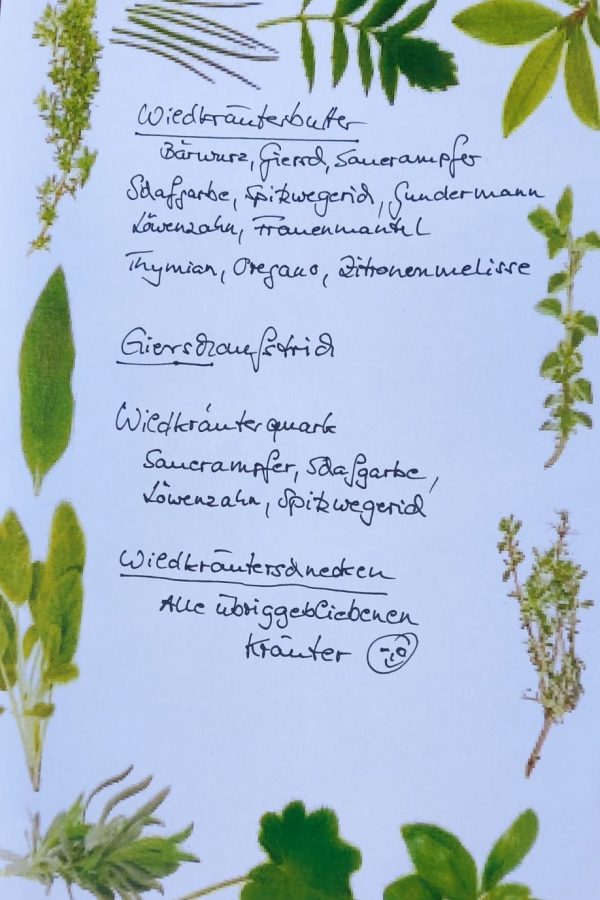 Wildkräuterbutter
Bärwurz, Giersch, Sauerampfer
Schafgarbe, Spitzwegerich, Gundermann
Löwenzahn, Frauenmantel
Thymian, Oregano, Zitronenmelisse
Gierschaufstrich
Wildkräuterquark
Sauerampfer, Schafgarbe,
Löwenzahn, Spitzwegerich
Wildkräuterschnecken
Alle übriggebliebenen
Kräuter